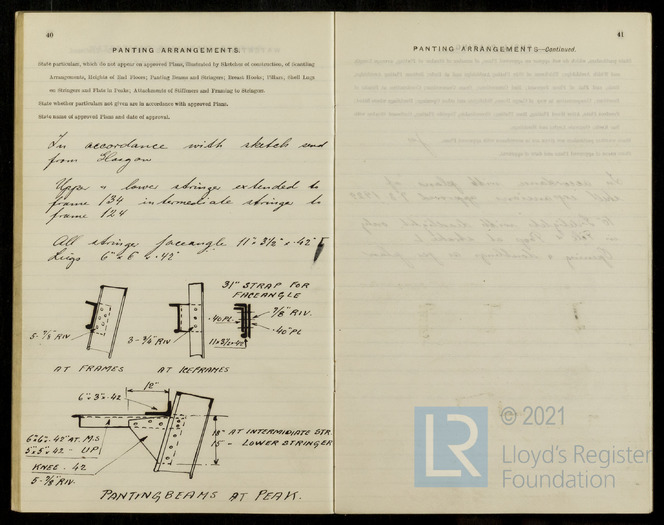 40
PANTING ARRANGEMENTS.
State particulars, which do not appear on approved Plans, illustrated by Sketches of construction, of Scantling
Arrangements, Heights of Peak Floors; Panting Beams and Stringers; Breast Hooks; Pillars; Shell Lugs
on Stringers and Flats in Peaks; Attachments of Stiffeners and Framing to Stringers.
State whether particulars not given are in accordance with approved Plans.
State name of approved Plans and date of approval.
In accordance with sketch send
from Glasgow
Upper & lower stringer extended to
frame 134 intermediate stringer to
frame 124
All stringer faceangle 11" x 3½" x .42"
Lugs 6" x 6 x .42"
31" STRAP FOR
FACEANGLE
.40 PL.
7/8" RIV.
.40" PL
11 x 3½ x .42
5 - 7/8" RIV
3 - 3/4" RIV
AT FRAMES
AT ICEFRAMES
12"
6" x 3" x .42
18" AT INTERMIDIATE STR.
15 - LOWER STRINGER
6" x 6" x .42" AT. M.S
5" x 5" x .42 - UP
KNEE . 42
5 - 7/8" RIV.
PANTINGBEAMS AT PEAK.
41
PANTING ARRANGEMENTS—Continued.
© 2021
LR
Lloyd's Register
Foundation